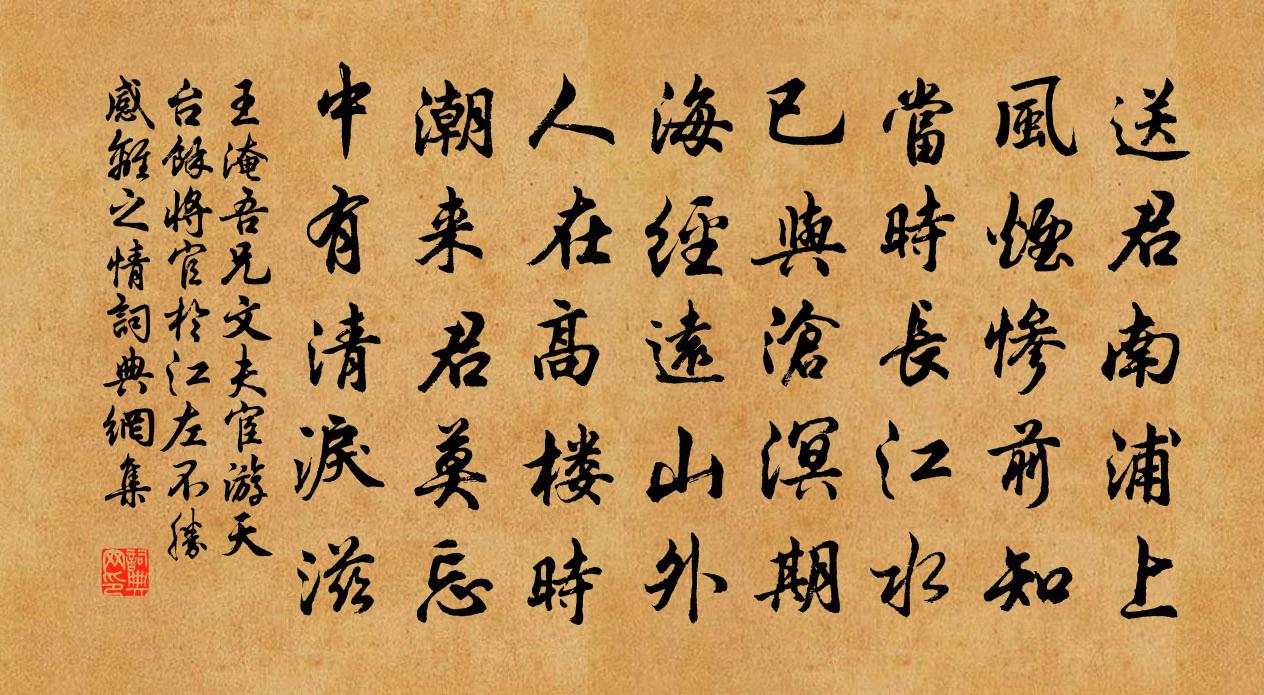 送君南浦上
風煙慘前知
當時長江水
已與滄溟期
海經遠山外
人在高楼時
潮来君莫忘
中有清淚滋
王淹吾兄文夫宦游天
台餘將官於江左不勝
感離之情詞典網集